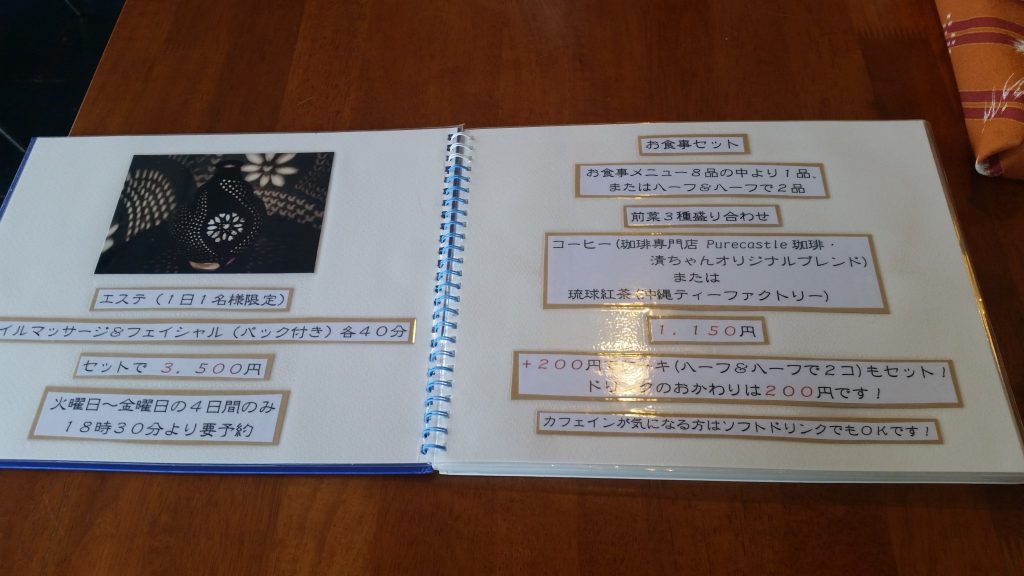 エステ(1日1名様限定)
イルマッサージ&フェイシャル(パック付き)各40分
セットで 3,500円
火曜日~金曜日の4日間のみ
18時30分より要予約
お食事セット
お食事メニュー8品の中より1品、
またはハーフ&ハーフで2品
前菜3種盛り合わせ
コーヒー(珈琲専門店 Purecastle 珈琲・
漬ちゃんオリジナルブレンド)
または
琉球紅茶(沖縄ティーファクトリー)
1,150円
+200円で キ(ハーフ&ハーフで2コ)もセット!
ドリンクのおかわりは200円です!
カフェインが気になる方はソフトドリンクでもOKです!